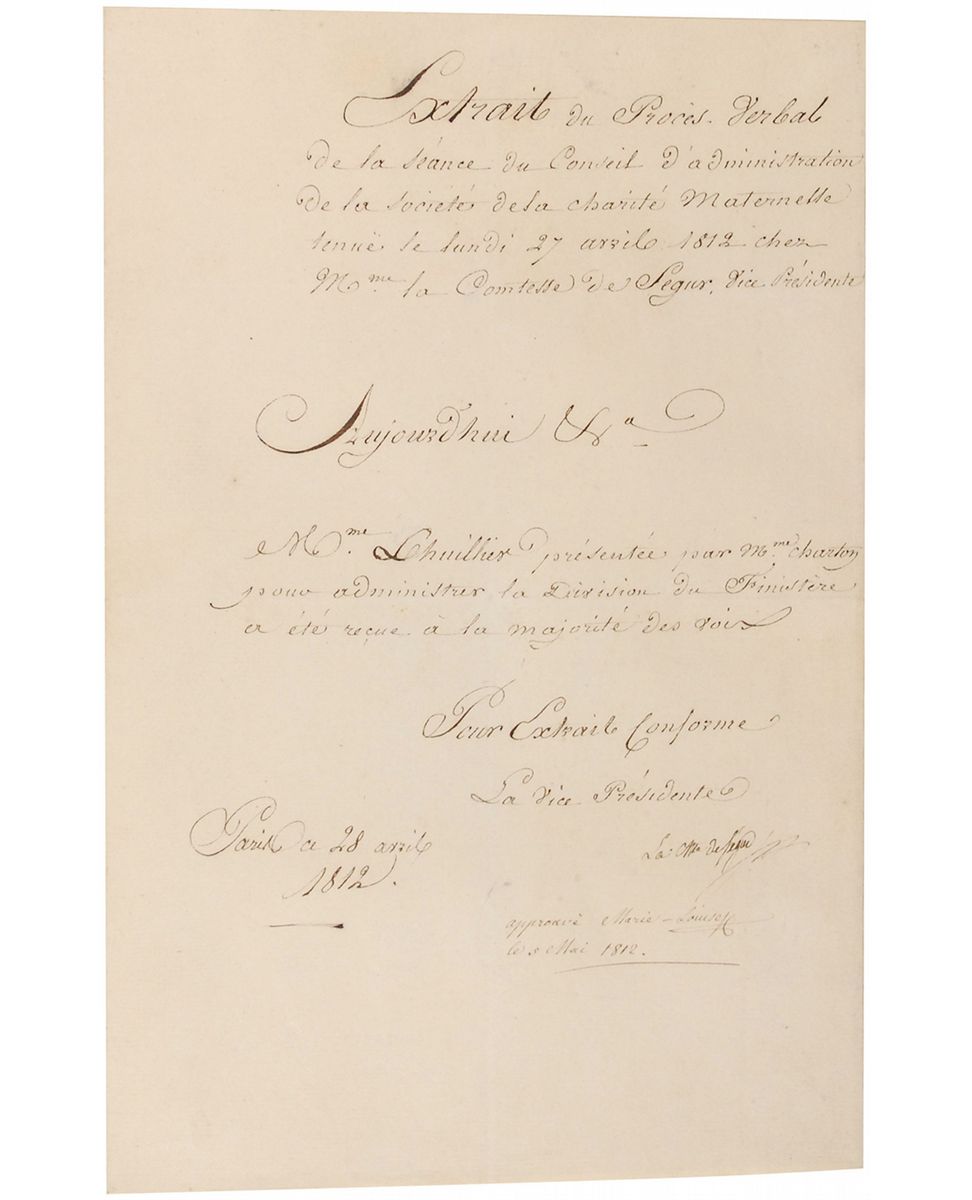 Extrait du Procès-Verbal
De la séance du Conseil d'administration
De la société de la charité Maternelle
tenuë le lundi 27 avril 1812 chez
M.me la Comtesse de Segur, Vice Présidente
Aujourd'hui &a
M.me Lhuillier présentée par M.me charton
pour administrer la Division du Finistère
a été reçue à la majorité des voix
Pour Extrait Conforme
La Vice Présidente
Paris ce 28 avril
1812.
La Ctsse de Ségur
approuvé Marie-Louise
le 8 Mai 1812.